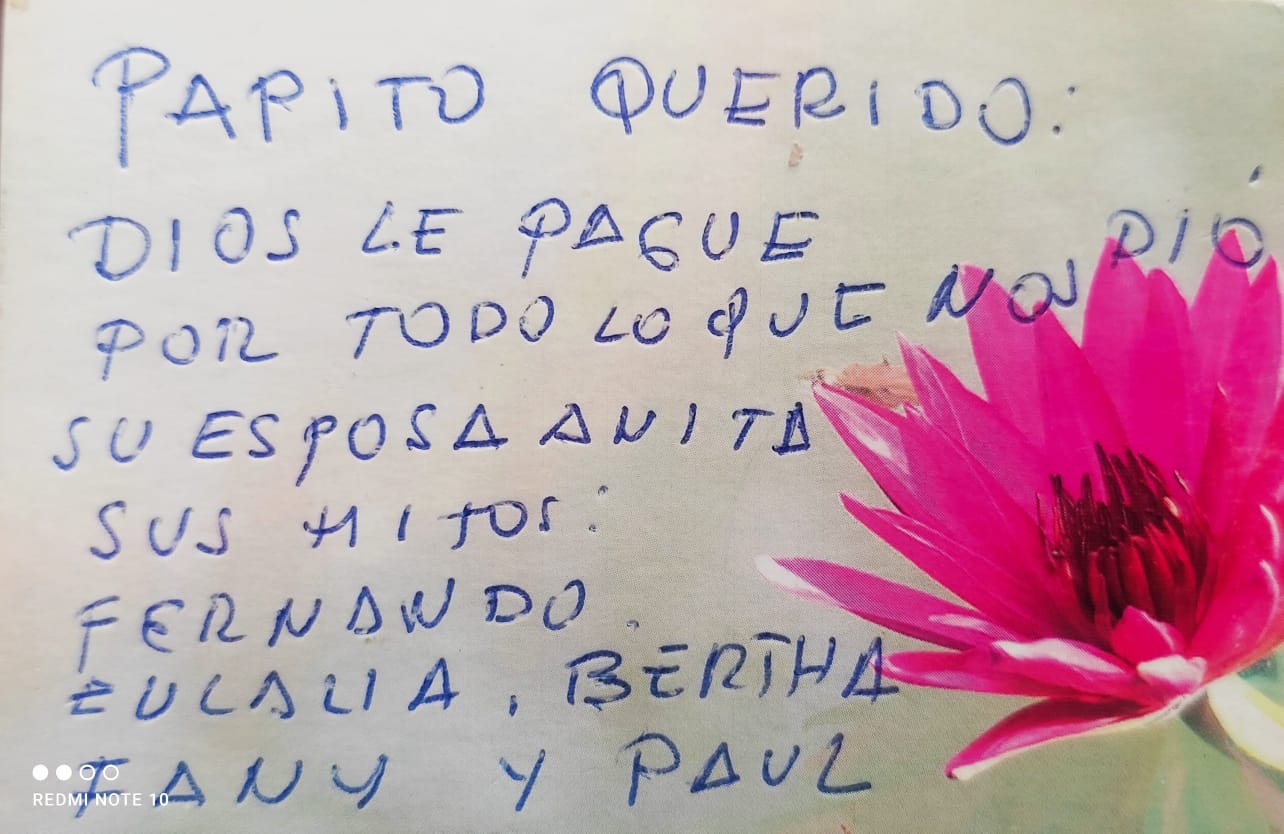 PAPITO QUERIDO:
DIOS LE PAGUE
POR TODO LO QUE NOS DIÓ
SU ESPOSA ANITA
SUS HIJOS:
FERNANDO.
EULALIA, BERTHA
FANY Y PAUL
REDMI NOTE 10